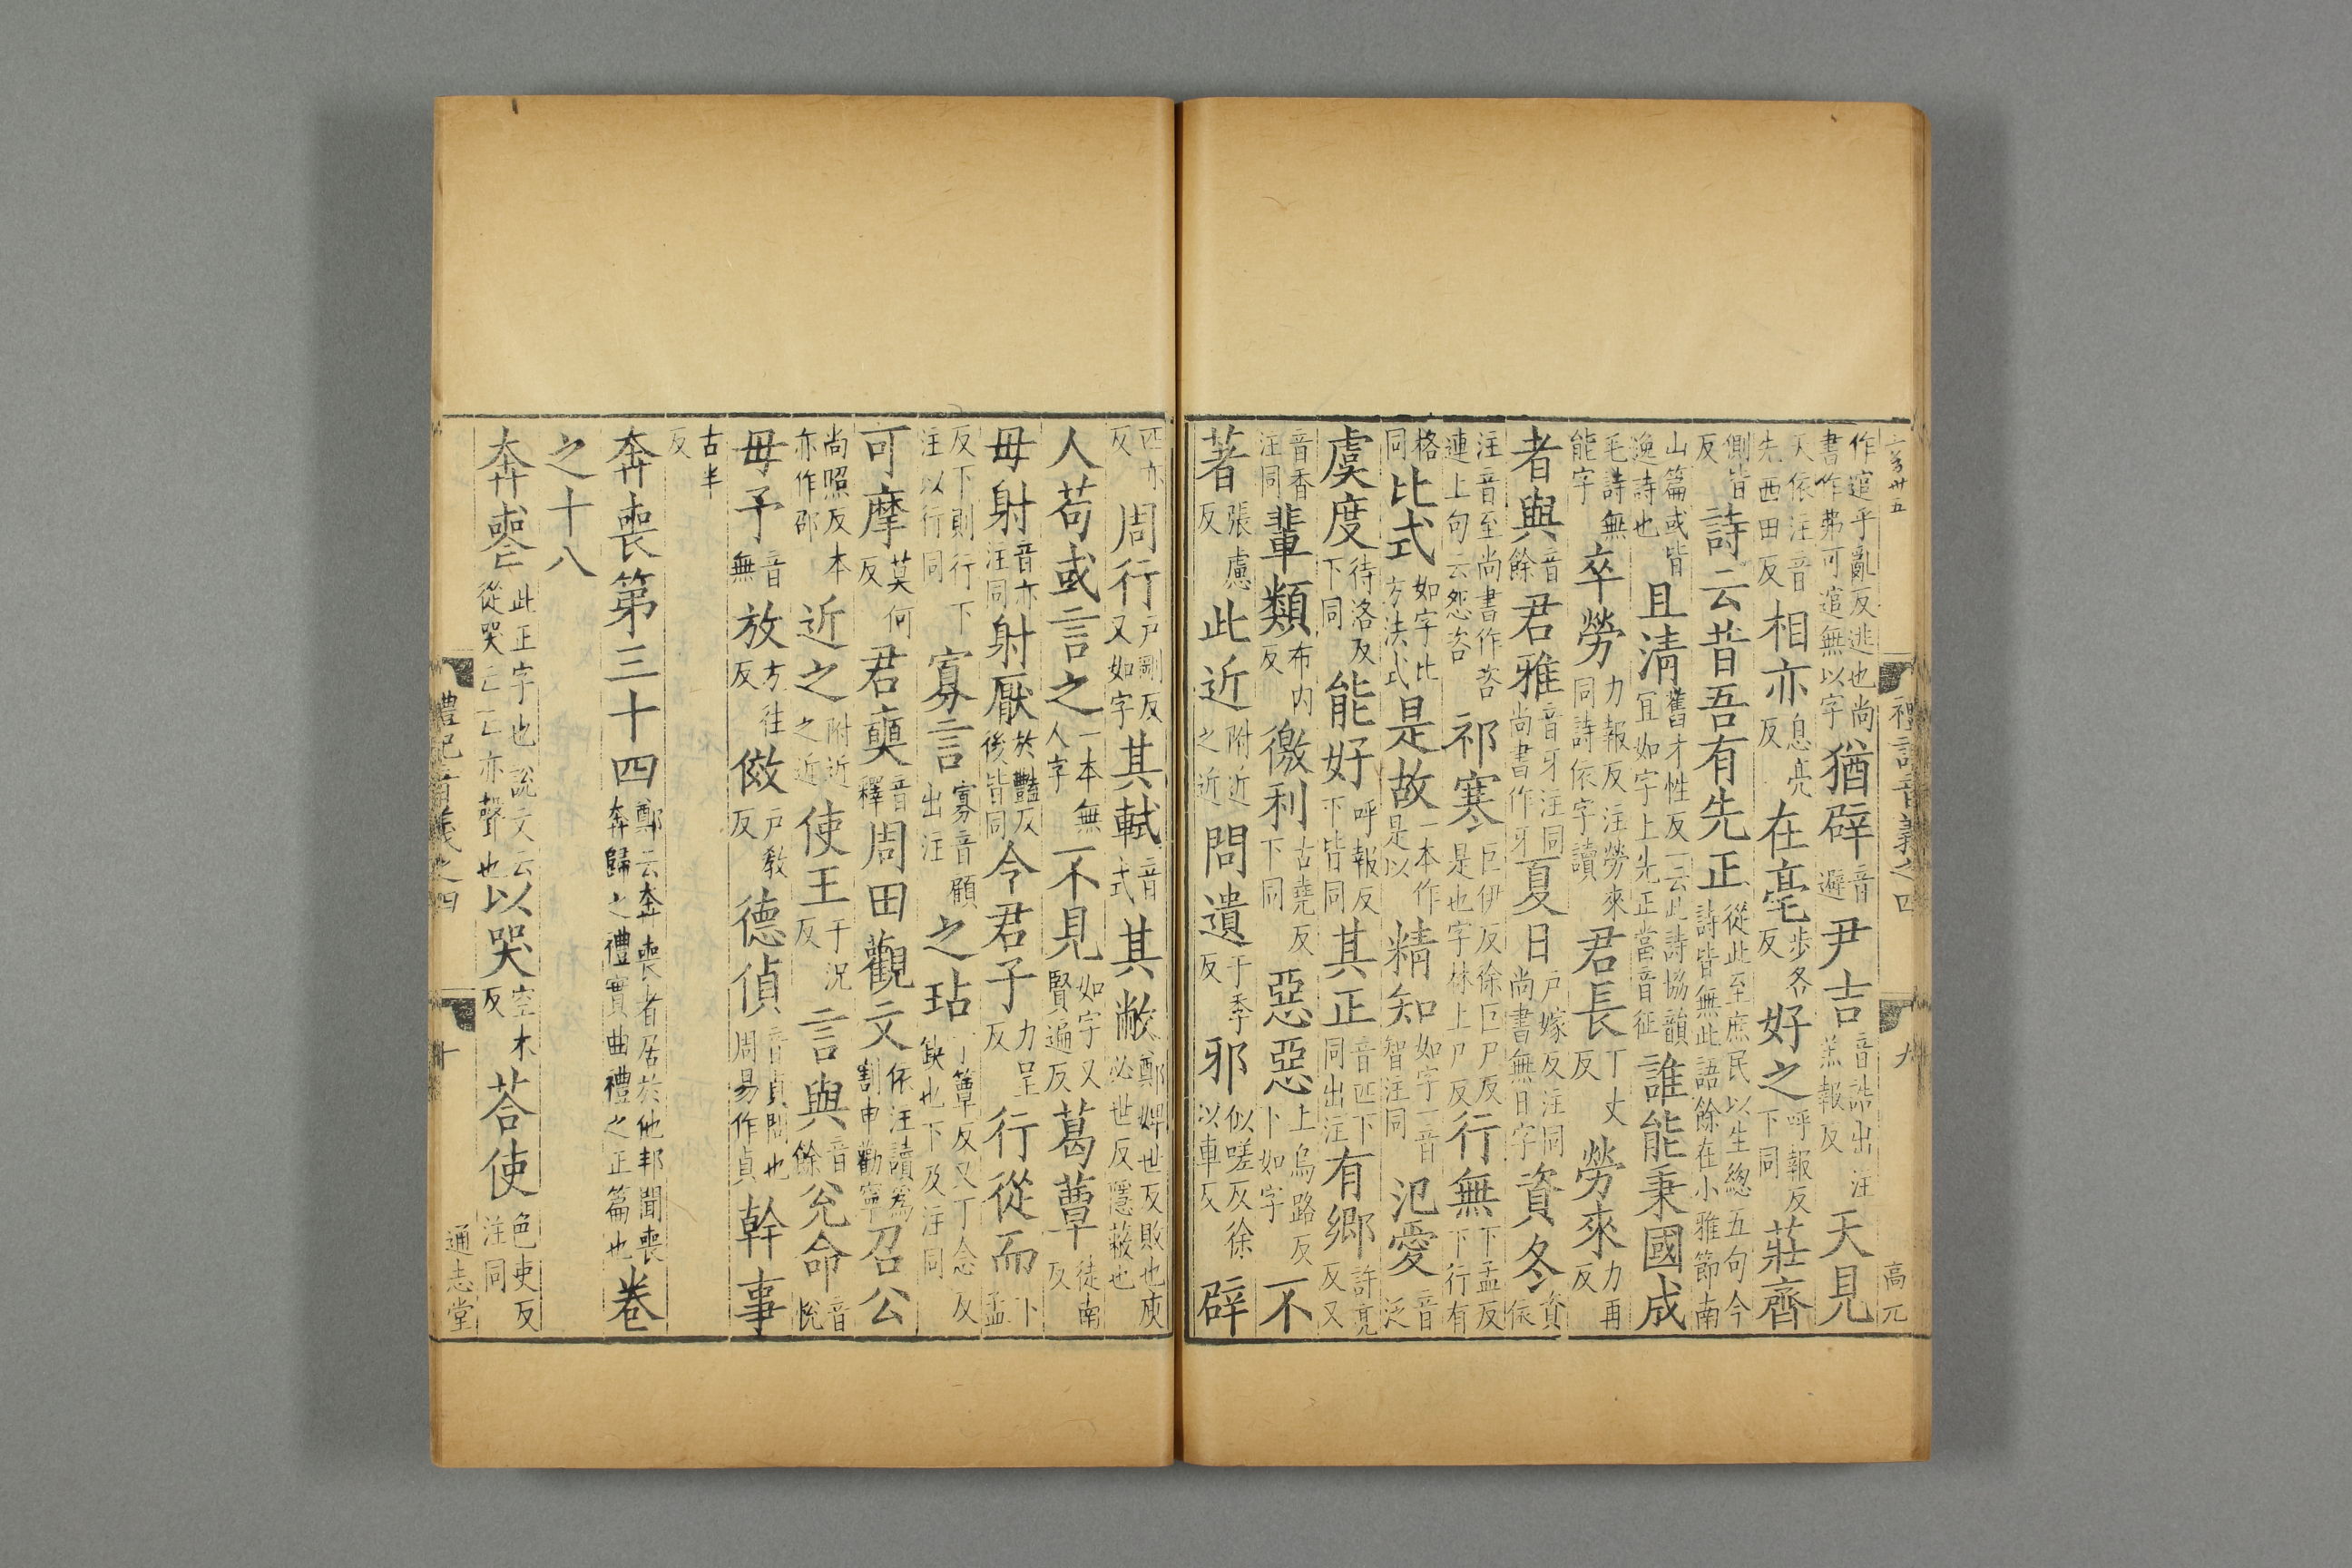 作逭乎亂反逃也尚書作弗可逭無以字猶辟音避尹吉音誥出注羔報反天見
天依注音先西田反相亦息亮反在亳步各反好之呼報反下同莊齊
側皆反詩云昔吾有先正從此至庶民以生總五句今詩皆無此語餘在小雅節南
山篇或皆逸詩也且清舊才性反一云此詩協韻宜如字上先正當音征誰能秉國成
毛詩無能字卒勞力報反注勞來同詩依字讀君長丁丈反勞來力再反
者與音餘君雅音牙注同尚書作牙夏日戶嫁反注同尚書無日字資冬資依
注音至尚書作咨連上句云怨咨祁寒巨伊反徐巨尸反是也字林上尸反行無下孟反下行有
格同比式如字比方法式是故一本作是以精知如字一音智注同氾愛音泛
虞度待洛反下同能好呼報反下皆同其正音匹下同出注有鄉許亮反又
音香注同輩類布内反徼利古堯反下同惡惡上烏路反下如字不
著張慮反此近附近之近問遺于季反邪似嗟反徐以車反辟
禮記音義之四 九 高元
匹亦反周行戶剛反又如字其軾音式其敝鄭婢世反敗也庾必世反隱蔽也
人苟或言之一本無人字不見如字又賢遍反葛蕈徒南反
毋射音亦注同射厭於豔反後皆同令君子力呈反行從而下孟
反下則行下注以行同寡言寡音顧出注之玷丁簟反又丁念反缺也下及注同
可摩莫何反君奭音釋周田觀文依注讀為割申勸寧召公
尚照反本亦作邵近之附近之近使王于況反言與音餘兌命音悅
毋予音無放方往反傚戶教反德偵音貞問也周易作貞幹事
古半反
奔喪第三十四鄭云奔喪者居於他邦聞喪奔歸之禮實曲禮之正篇也卷
之十八
奔喪此正字也說文云從哭亡亡亦聲也以哭空木反荅使色吏反注同
禮記音義之四 十 通志堂